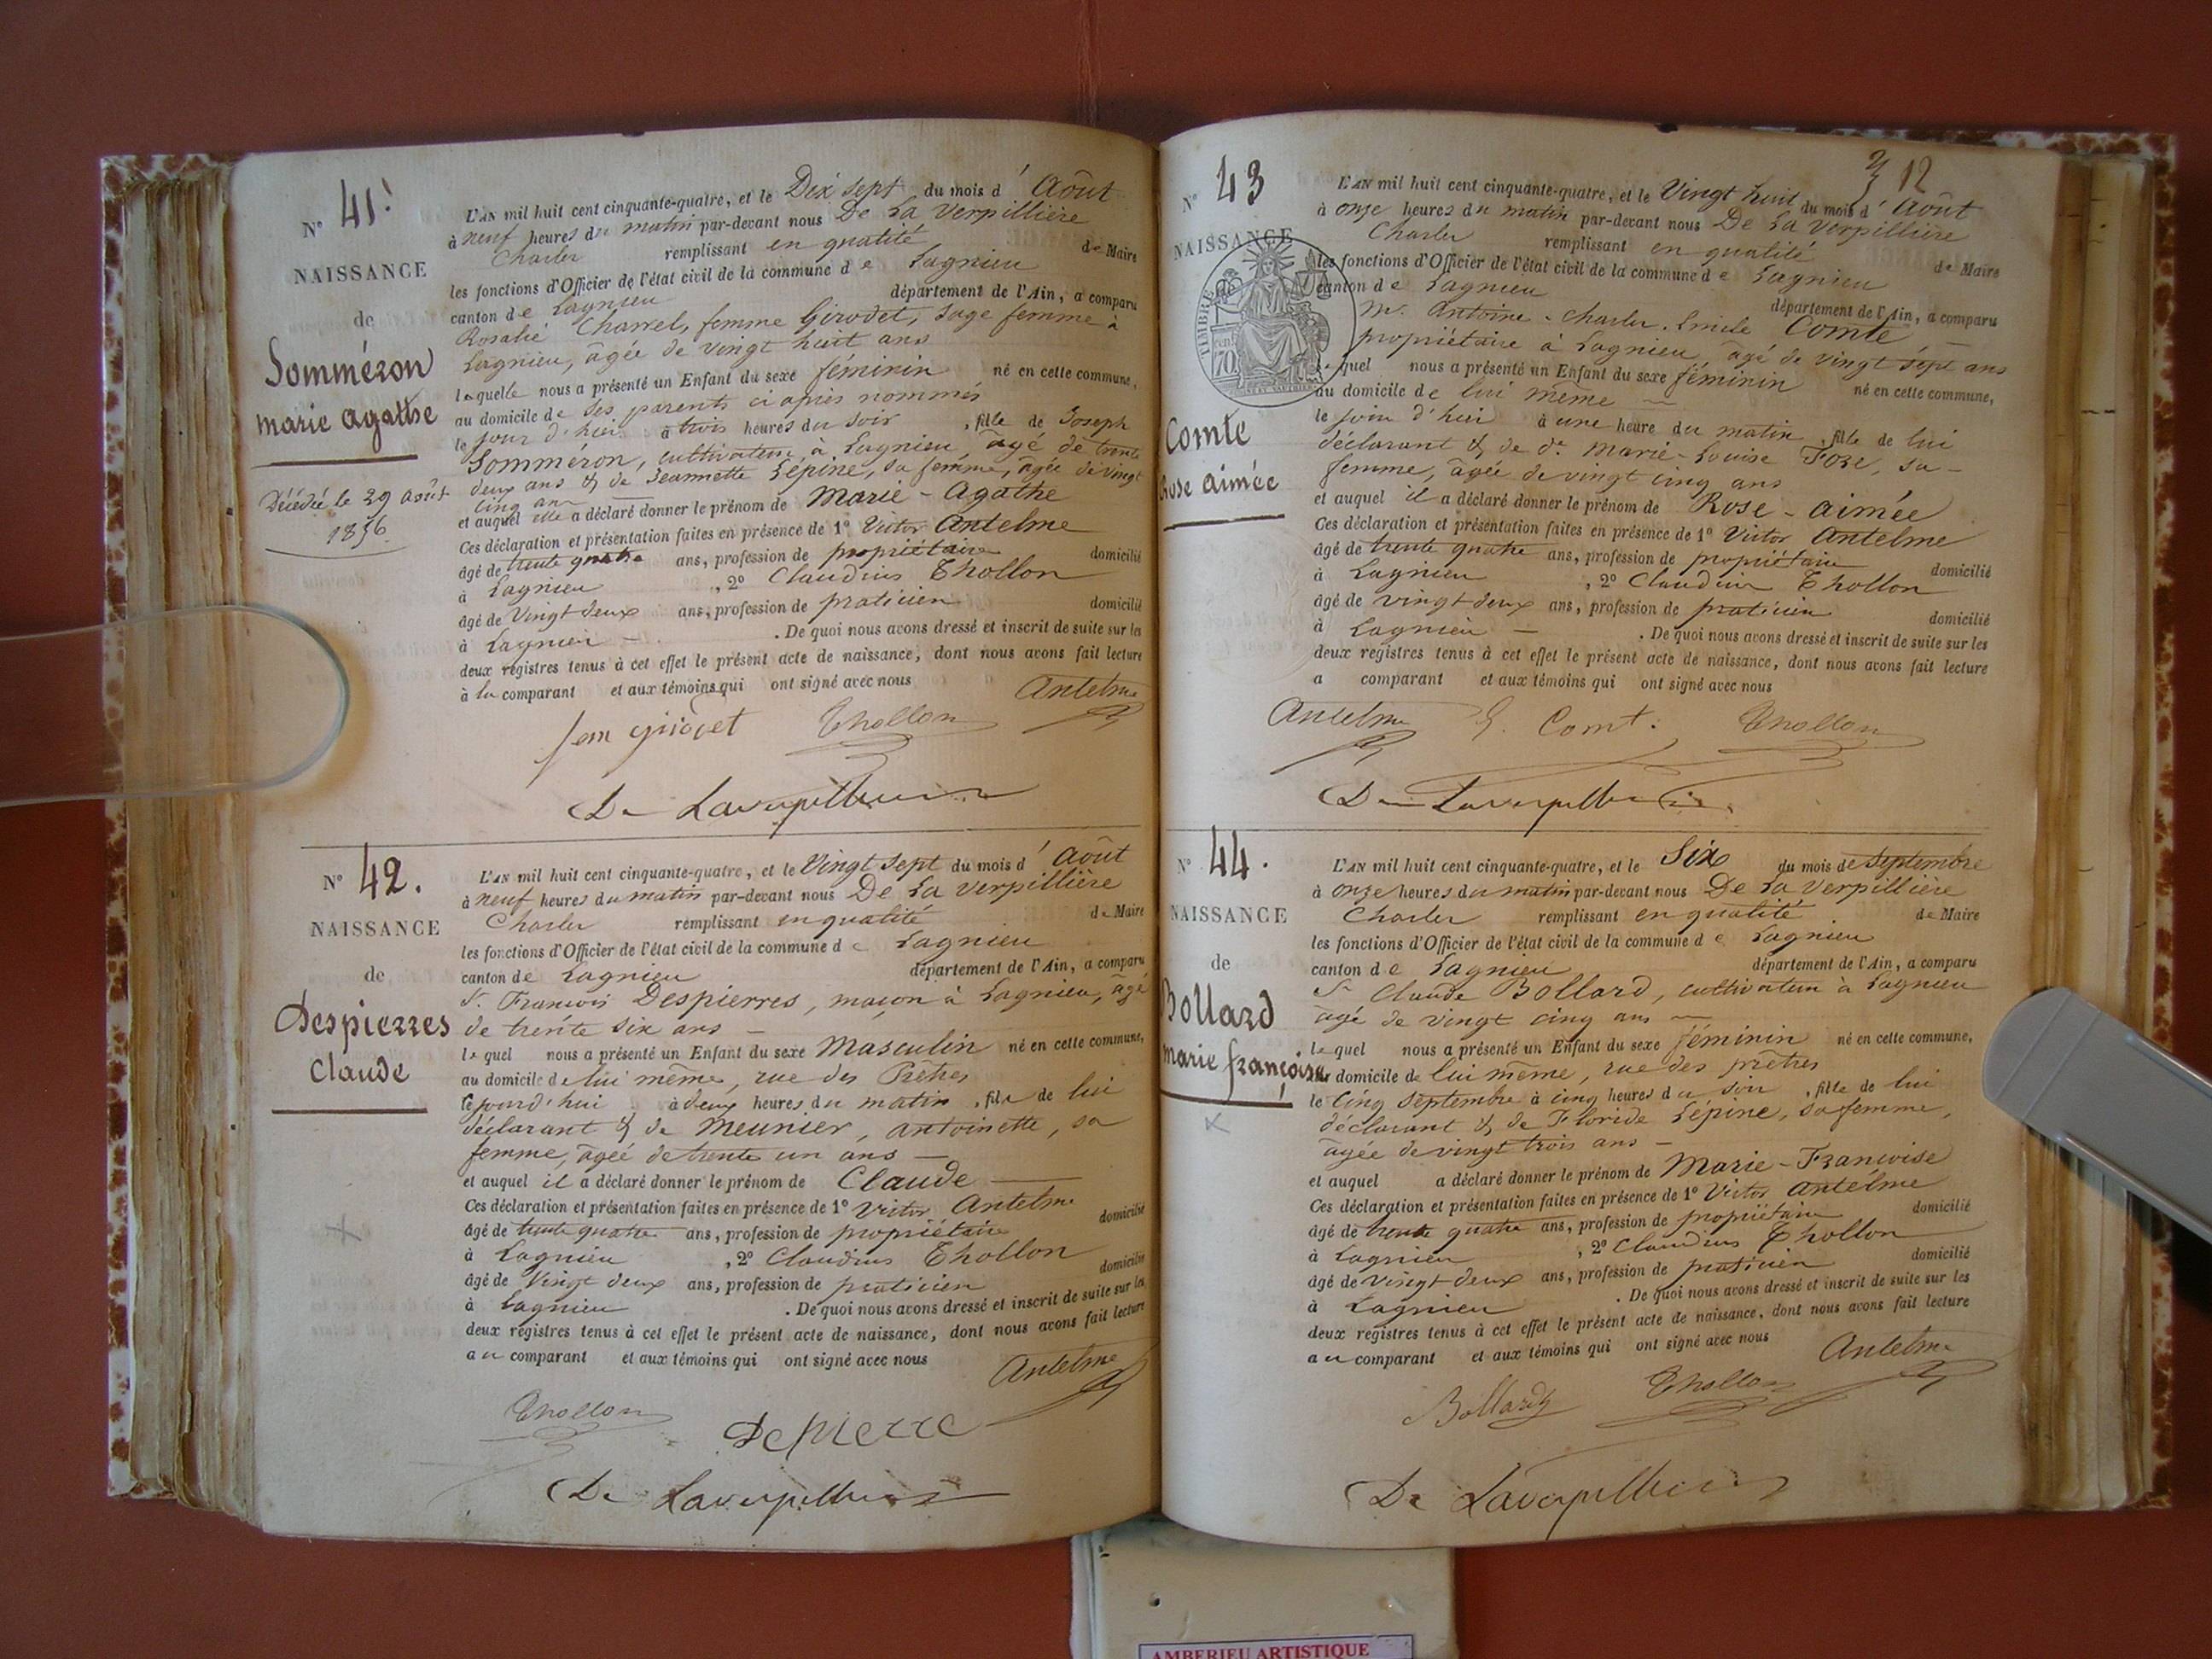 N° 41.
NAISSANCE
de
Somméron
marie agathe
Décédée le 29 Août
1856.
L'AN mil huit cent cinquante-quatre, et le Dix sept du mois d'Août
à neuf heures du matin par-devant nous De La Verpillière
Charles remplissant en qualité de Maire
les fonctions d'Officier de l'état civil de la commune de Lagnieu
canton de Lagnieu département de l'Ain, a comparu
Rosalie Charrel, femme Girodet, sage femme à
Lagnieu, âgée de vingt huit ans
laquelle nous a présenté un Enfant du sexe féminin né en cette commune,
au domicile de ses parents ci après nommés
le jour d'hier à trois heures du soir, fille de Joseph
Somméron, cultivateur à Lagnieu, âgé de trente
deux ans & de Jeannette Lépine, sa femme, âgée de vingt
cinq ans
et auquel elle a déclaré donner le prénom de Marie-Agathe
Ces déclaration et présentation faites en présence de 1° Victor Antelme
âgé de trente quatre ans, profession de propriétaire domicilié
à Lagnieu, 2° Claudius Thollon
âgé de Vingt deux ans, profession de praticien domicilié
à Lagnieu. De quoi nous avons dressé et inscrit de suite sur les
deux registres tenus à cet effet le présent acte de naissance, dont nous avons fait lecture
à la comparant et aux témoins qui ont signé avec nous
Antelme
Thollon
De Laverpilliere
N° 42.
NAISSANCE
de
Despierres
Claude
L'AN mil huit cent cinquante-quatre, et le Vingt sept du mois d'Août
à neuf heures du matin par-devant nous De La Verpillière
Charles remplissant en qualité de Maire
les fonctions d'Officier de l'état civil de la commune de Lagnieu
canton de Lagnieu département de l'Ain, a comparu
Sr. François Despierres, maçon à Lagnieu, âgé
de trente six ans
lequel nous a présenté un Enfant du sexe Masculin né en cette commune,
au domicile de lui même, rue des Prêtres
le jourd'hui à deux heures du matin, fils de lui
déclarant & de Meunier, antoinette, sa
femme, âgée de trente un ans
et auquel il a déclaré donner le prénom de Claude
Ces déclaration et présentation faites en présence de 1° Victor Antelme
âgé de trente quatre ans, profession de propriétaire domicilié
à Lagnieu, 2° Claudius Thollon
âgé de Vingt deux ans, profession de praticien domicilié
à Lagnieu. De quoi nous avons dressé et inscrit de suite sur les
deux registres tenus à cet effet le présent acte de naissance, dont nous avons fait lecture
au comparant et aux témoins qui ont signé avec nous
Antelme
Thollon
Depierre
De Laverpilliere
12
N° 43
NAISSANCE
TIMBRE
70
Comte
Rose aimée
L'AN mil huit cent cinquante-quatre, et le Vingt huit du mois d'Août
à onze heures du matin par-devant nous De La Verpillière
Charles remplissant en qualité de Maire
les fonctions d'Officier de l'état civil de la commune de Lagnieu
canton de Lagnieu département de l'Ain, a comparu
Mr. Antoine-Charles-Emile Comte
propriétaire à Lagnieu, âgé de vingt sept ans
lequel nous a présenté un Enfant du sexe féminin né en cette commune,
au domicile de lui même
le jour d'hier à une heure du matin, fille de lui
déclarant & de de. Marie-Louise Foze, sa
femme, âgée de vingt cinq ans
et auquel il a déclaré donner le prénom de Rose-aimée
Ces déclaration et présentation faites en présence de 1° Victor Antelme
âgé de trente quatre ans, profession de propriétaire domicilié
à Lagnieu, 2° Claudius Thollon
âgé de vingt deux ans, profession de praticien domicilié
à Lagnieu. De quoi nous avons dressé et inscrit de suite sur les
deux registres tenus à cet effet le présent acte de naissance, dont nous avons fait lecture
a comparant et aux témoins qui ont signé avec nous
Antelme E. Comte Thollon
De Laverpilliere
N° 44.
NAISSANCE
de
Bollard
marie françoise
L'AN mil huit cent cinquante-quatre, et le Six du mois de Septembre
à onze heures du matin par-devant nous De La Verpillière
Charles remplissant en qualité de Maire
les fonctions d'Officier de l'état civil de la commune de Lagnieu
canton de Lagnieu département de l'Ain, a comparu
Sr Claude Bollard, cultivateur à Lagnieu
âgé de vingt cinq ans
lequel nous a présenté un Enfant du sexe féminin né en cette commune,
au domicile de lui même, rue des prêtres
le Cinq Septembre à cinq heures du soir, fille de lui
déclarant & de Floride Lépine, sa femme,
âgée de vingt trois ans
et auquel a déclaré donner le prénom de Marie-Françoise
Ces déclaration et présentation faites en présence de 1° Victor Antelme
âgé de trente quatre ans, profession de propriétaire domicilié
à Lagnieu, 2° Claudius Thollon
âgé de vingt deux ans, profession de praticien domicilié
à Lagnieu. De quoi nous avons dressé et inscrit de suite sur les
deux registres tenus à cet effet le présent acte de naissance, dont nous avons fait lecture
au comparant et aux témoins qui ont signé avec nous
Antelme
Bollard Thollon
De Laverpilliere
AMBERIEU ARTISTIQUE